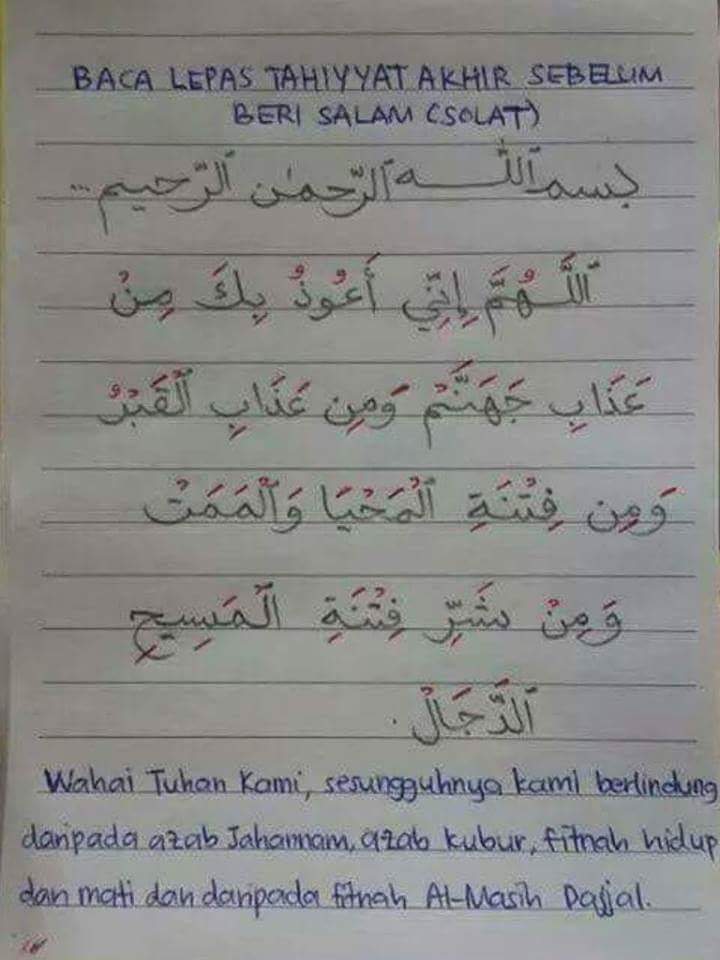 BACA LEPAS TAHIYYAT AKHIR SEBELUM
BERI SALAM (SOLAT)
بسم ٱللّٰه ٱلرّحمٰن ٱلرّحيم...
ٱللَّهُمَّ إِنِّي أَعُوْذُ بِكَ مِنْ
عَذَابِ جَهَنَّمْ وَمِن عَذَابِ ٱلْقَبْرْ
وَمِن فِتْنَةِ ٱلْمَحْيَا وَٱلْمَمَتْ
وَمِنْ شَرِّ فِتْنَةِ ٱلْمَسِيحِ
ٱلدَّجَالْ.
Wahai Tuhan Kami, sesungguhnya kami berlindung
daripada azab Jahannam, azab kubur, fitnah hidup
dan mati dan daripada fitnah Al-Masih Dajjal.